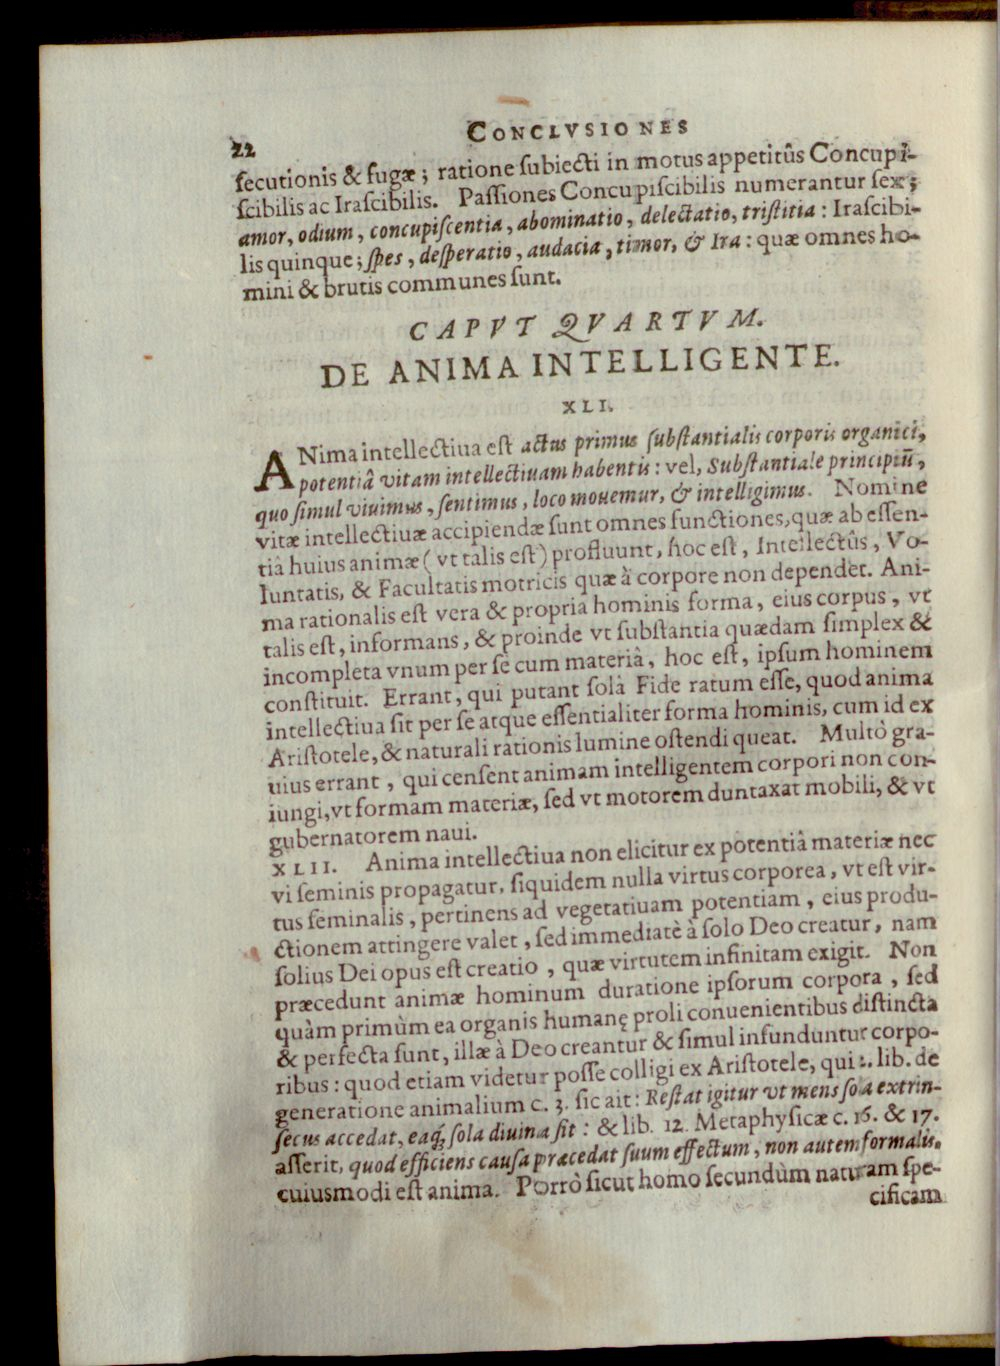 22
CONCLVSIONES
ſecutionis & fugæ; ratione ſubiecti in motus appetitûs Concupi-
ſcibilis ac Iraſcibilis. Paſſiones Concupiſcibilis numerantur ſex;
amor, odium, concupiſcentia, abominatio, delectatio, triſtitia: Iraſcibi-
lis quinque; ſpes, deſperatio, audacia, timor, & Ira: quæ omnes ho-
mini & brutis communes ſunt.
CAPVT QVARTVM.
DE ANIMA INTELLIGENTE.
XLI.
ANima intellectiua eſt actus primus ſubſtantialis corporis organici,
potentiâ vitam intellectiuam habentis: vel, Subſtantiale principiū,
quo ſimul viuimus, ſentimus, loco mouemur, & intelligimus. Nomine
vitæ intellectiuæ accipiendæ ſunt omnes functiones, quæ ab eſſen-
tiâ huius animæ (vt talis eſt) profluunt, hoc eſt, Intellectûs, Vo-
luntatis, & Facultatis motricis quæ à corpore non dependet. Ani-
ma rationalis eſt vera & propria hominis forma, eius corpus, vt
talis eſt, informans, & proinde vt ſubſtantia quædam ſimplex &
incompleta vnum per ſe cum materiâ, hoc eſt, ipſum hominem
conſtituit. Errant, qui putant ſolâ Fide ratum eſſe, quod anima
intellectiua ſit per ſe atque eſſentialiter forma hominis, cum id ex
Ariſtotele, & naturali rationis lumine oſtendi queat. Multò gra-
uius errant, qui cenſent animam intelligentem corpori non con-
iungi, vt formam materiæ, ſed vt motorem duntaxat mobili, & vt
gubernatorem naui.
XLII. Anima intellectiua non elicitur ex potentiâ materiæ nec
vi ſeminis propagatur, ſiquidem nulla virtus corporea, vt eſt vir-
tus ſeminalis, pertinens ad vegetatiuam potentiam, eius produ-
ctionem attingere valet, ſed immediatè à ſolo Deo creatur, nam
ſolius Dei opus eſt creatio, quæ virtutem infinitam exigit. Non
præcedunt animæ hominum duratione ipſorum corpora, ſed
quàm primùm ea organis humanę proli conuenientibus diſtincta
& perfecta ſunt, illæ à Deo creantur & ſimul infunduntur corpo-
ribus: quod etiam videtur poſſe colligi ex Ariſtotele, qui 2. lib. de
generatione animalium c. 3. ſic ait: Reſtat igitur vt mens ſola extrin-
ſecus accedat, eaq́; ſola diuina ſit: & lib. 12. Metaphyſicæ c. 16. & 17.
aſſerit, quod efficiens cauſa præcedat ſuum effectum, non autem formalis.
cuiusmodi eſt anima. Porrò ſicut homo ſecundùm naturam ſpe-
cificam